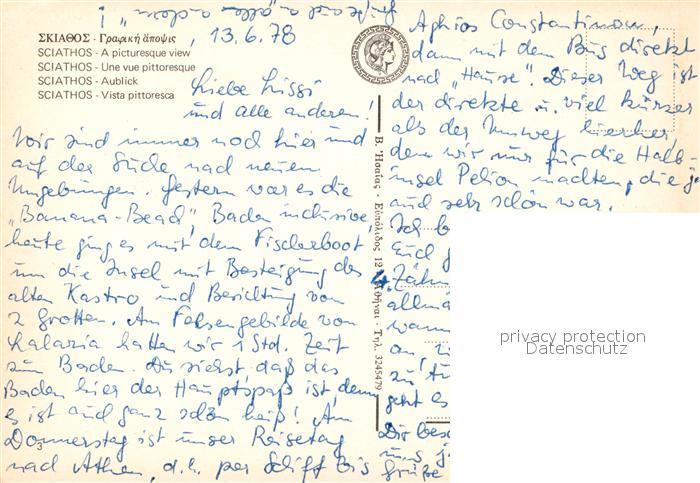 ΣΚΙΑΘΟΣ - Γραφική ἄποψις
SCIATHOS - A picturesque view
SCIATHOS - Une vue pittoresque
SCIATHOS - Aublick
SCIATHOS - Vista pittoresca
13.6.78
Liebe Lissi
und alle anderen!
Wir sind immer noch hier und
auf der Suche nach neuen
Umgebungen. Gestern war es die
„Banana-Beach", Baden inclusive
heute ging es mit dem Fischerboot
um die Insel mit Besteigung des
alten Kastro und Besichtung von
2 Grotten. Am Felsengebilde von
Lalaria hatten wir 1 Std. Zeit
zum Baden. Du siehst, daß das
Baden hier der Hauptspaß ist, denn
es ist auch ganz schön heiß! Am
Donnerstag ist unser Reisetag
nach Athen, d.h. per Schiff bis
Aghios Constantinou,
dann mit dem Bus direkt
nach „Hause". Dieser Weg ist
der direkte u. viel kürzer
als der Umweg hierher,
den wir nur für die Halb-
insel Pelion machten, die ja
auch sehr schön war.
Ich
Euch
Zähn
allmä
wann
an
zu
geht es
Dir
uns
Grüße
Β. Ἡσαΐας - Εὐπόλιδος 12 Ἀθῆναι - Τηλ. 3245479
3
privacy protection
Datenschutz